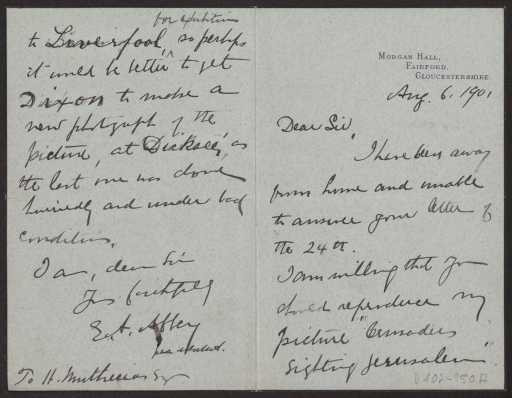 Morgan Hall,
Fairford,
Gloucestershire.
Aug. 6. 1901
Dear Sir,
I have been away
from home and unable
to answer your letter of
the 24th.
I am willing that you
should reproduce my
picture "Crusaders
Sighting Jerusalem".
for exhibition
to Liverpool, so perhaps
it would be better to get
Dixon to make a
new photograph of the
picture, at Dicksee's, as
the last one was done
hurriedly and under bad
conditions.
I am, dear Sir
Yrs faithfully
E. A. Abbey
To H. Muthesius Esq